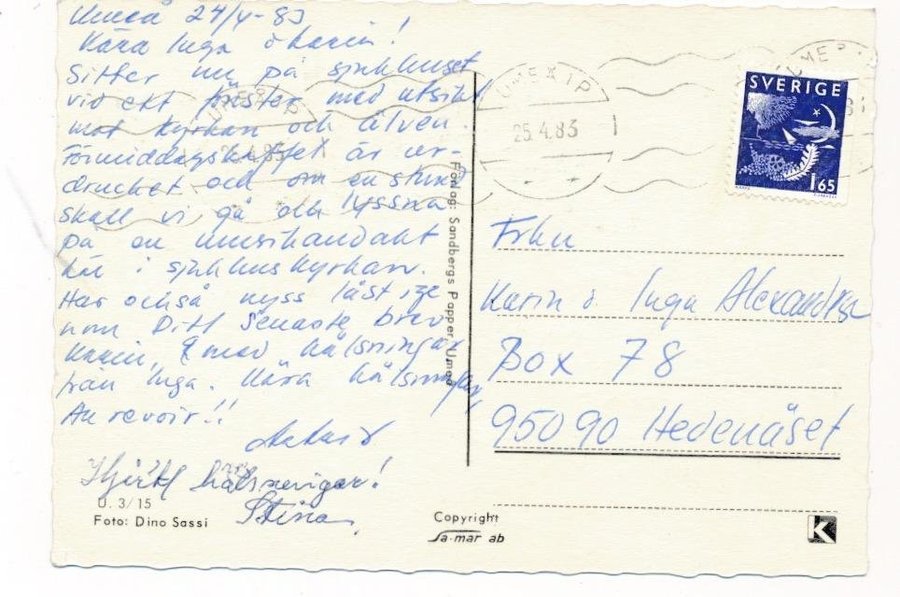 Umeå 24/4-83
Kära Inga o Karin!
Sitter nu på sjukhuset
vid ett fönster med utsikt
mot kyrkan och älven.
Förmiddagskaffet är ur-
drucket och om en stund
skall vi gå och lyssna
på en musikandakt
här i sjukhuskyrkan.
Har också nyss läst ige
nom Ditt senaste brev
Karin, med hälsningar
från Inga. Kära hälsningar
Au revoir!!
Hjärtl hälsningar!
Stina
U. 3/15
Foto: Dino Sassi
Förlag: Sandbergs Papper, Umeå
Copyright
sa-mar ab
K
25.4.83
SVERIGE
1 65
Frkn
Karin o. Inga
Box 78
95090 Hedenäset